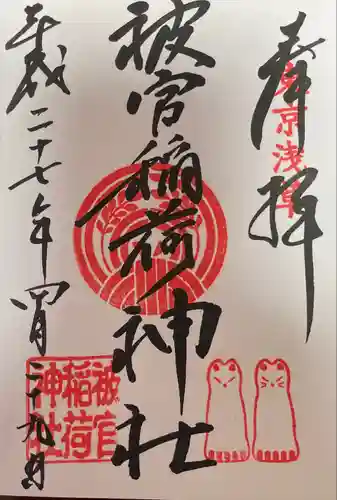 奉拝
東京浅草
被官稲荷神社
被官
稲荷
神社
平成二十七年四月二十九日